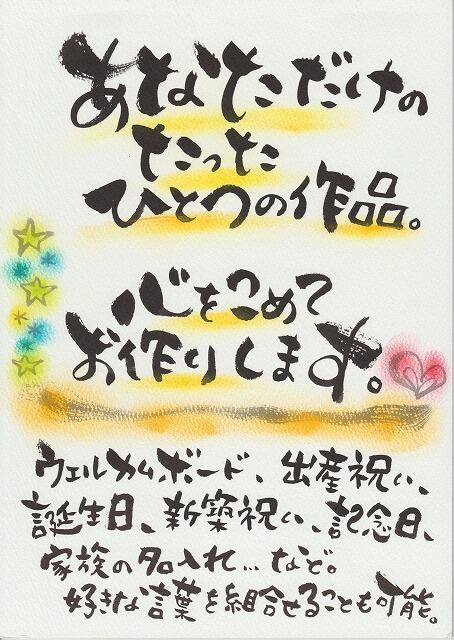 あなただけの
たった
ひとつの作品。
心をこめて
お作りします。
ウェルカムボード、出産祝い、
誕生日、新築祝い、記念日、
家族の名入れ…など。
好きな言葉を組合せることも可能。